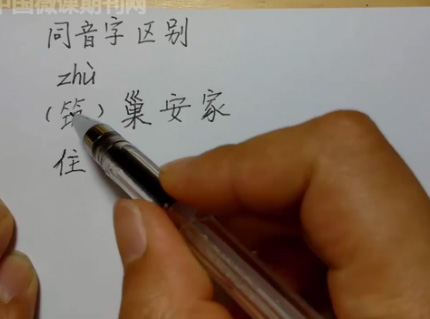 中国微课期刊网
同音字区别
zhù
(筑)巢安家
住